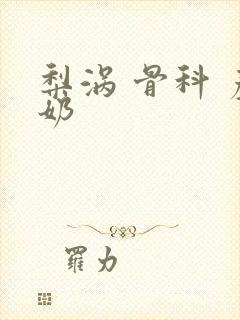 梨涡 骨科
奶
羅力